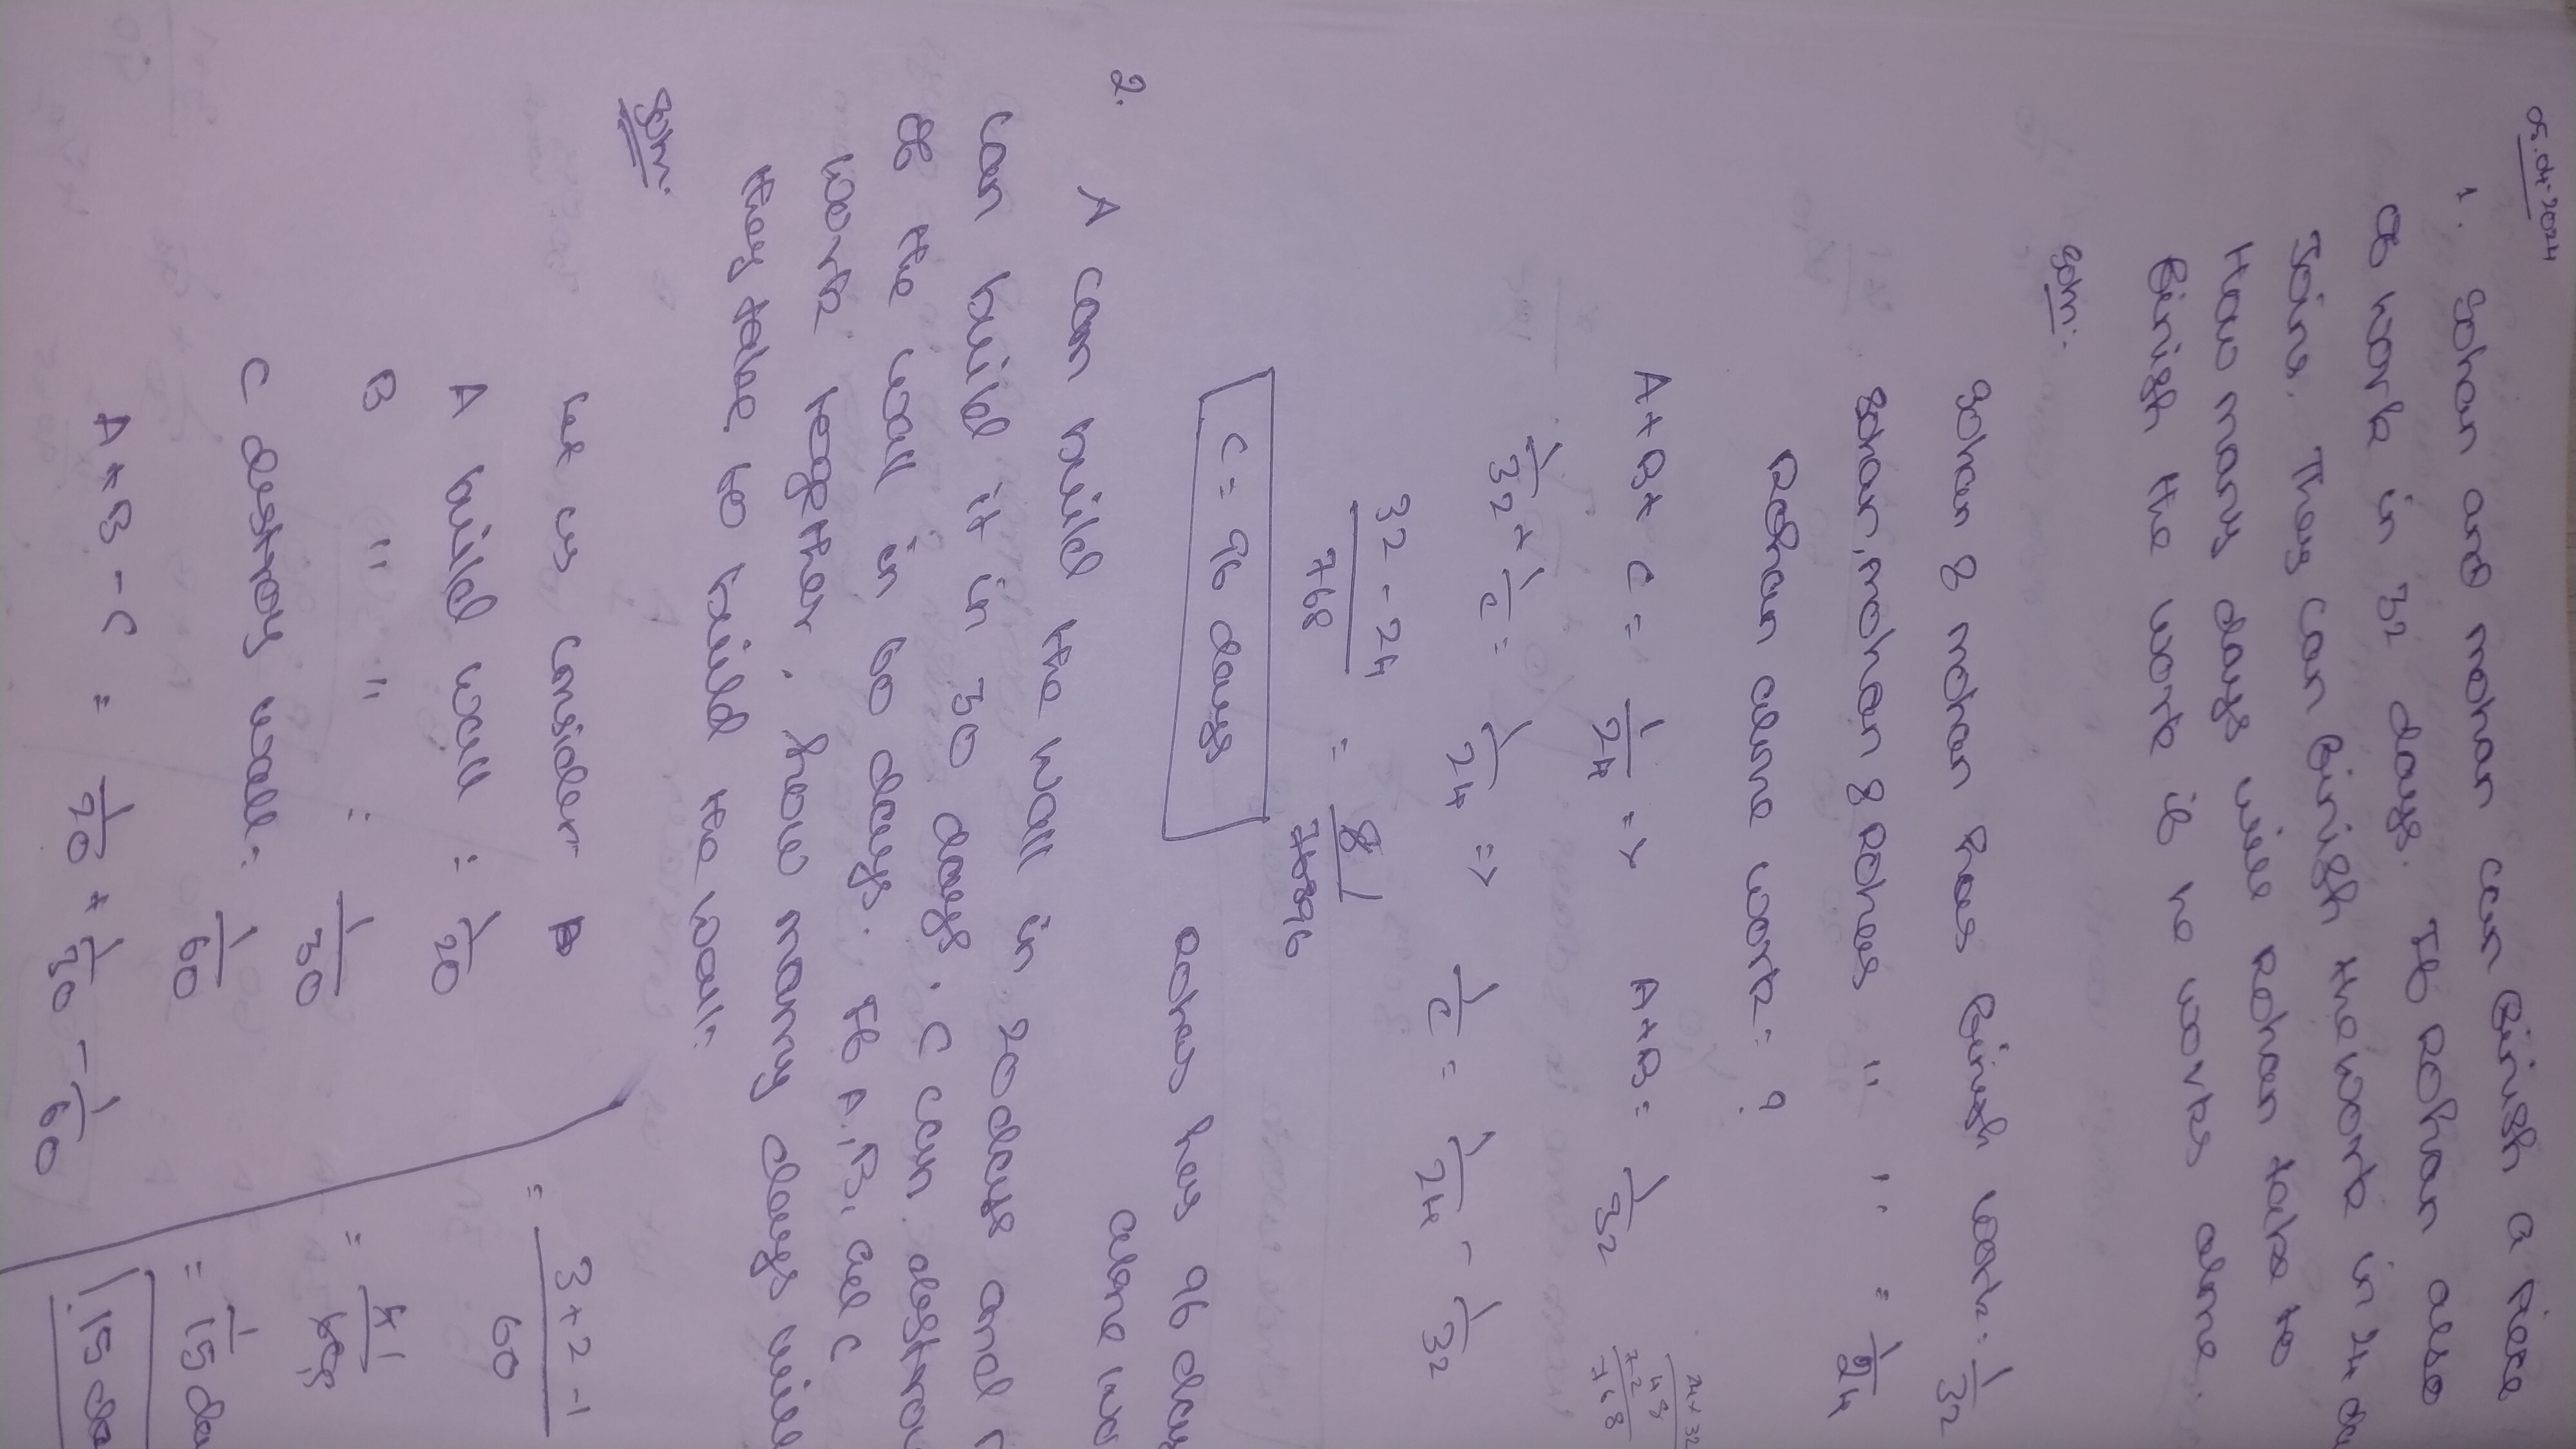 05.04-2024
1. Sohan and mohan can finish a piece
of work in 32 days. If Rohan also
Joins. They can finish the work in 24 da
How many days will Rohan take to
finish the work if he works alone.
Soln:-
Sohan & mohan has finish work = 1/32
Sohan, mohan & Rohas " " = 1/24
Rohan alone work = ?
A+B+C = 1/24 => A+B = 1/32
24 x 32
48
72
768
1/32 + 1/c = 1/24 => 1/c = 1/24 - 1/32
32 - 24 / 768 = 8 1 / 768 96
C = 96 days
Rohas has 96 day
alone wo
2. A can build the wall in 20 days and
can build it in 30 days. C can destroy
of the wall in 60 days. If A, B, and C
work together, how many days will
they take to build the wall:
Soln.
Let us consider
A build wall = 1/20
B " " = 1/30
C destroy wall = 1/60
A+B-C = 1/20 + 1/30 - 1/60
= 3+2-1 / 60
= 4 1 / 60 15
= 1/15 da
15 da